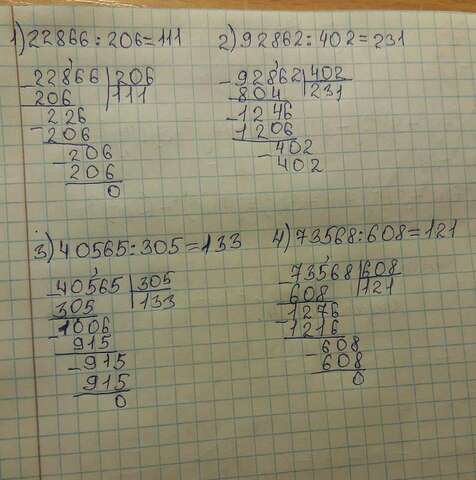 1) 22866 : 206 = 111
22866 206
206 111
226
206
206
206
0
2) 92862 : 402 = 231
92862 402
804 231
1246
1206
402
402
3) 40565 : 305 = 133
40565 305
305 133
1006
915
915
915
0
4) 73568 : 608 = 121
73568 608
608 121
1276
1216
608
608
0